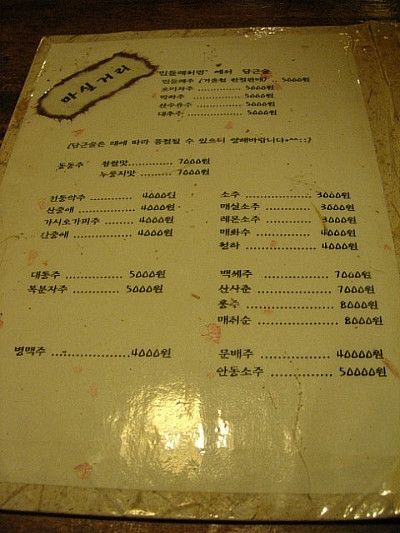 마실거리
"민들레처럼" 에서 담근술
민들레주 (겨울철 한정판매) .. 5000원
오미자주 5000원
막과주 5000원
산수유주 5000원
대추주 5000원
(담근술은 때에 따라 품절될 수 있으니 양해바랍니다*^^::)
동동주 찹쌀맛 7000원
누룽지맛 7000원
전통약주 4000원
산중애 4000원
가시오가피주 4000원
산중애 4000원
소주 3000원
매실소주 3000원
레몬소주 3000원
매화수 4000원
청하 4000원
대통주 5000원
복분자주 5000원
백세주 7000원
산사춘 7000원
8000원
매취순 8000원
병맥주 4000원
문배주 40000원
안동소주 50000원